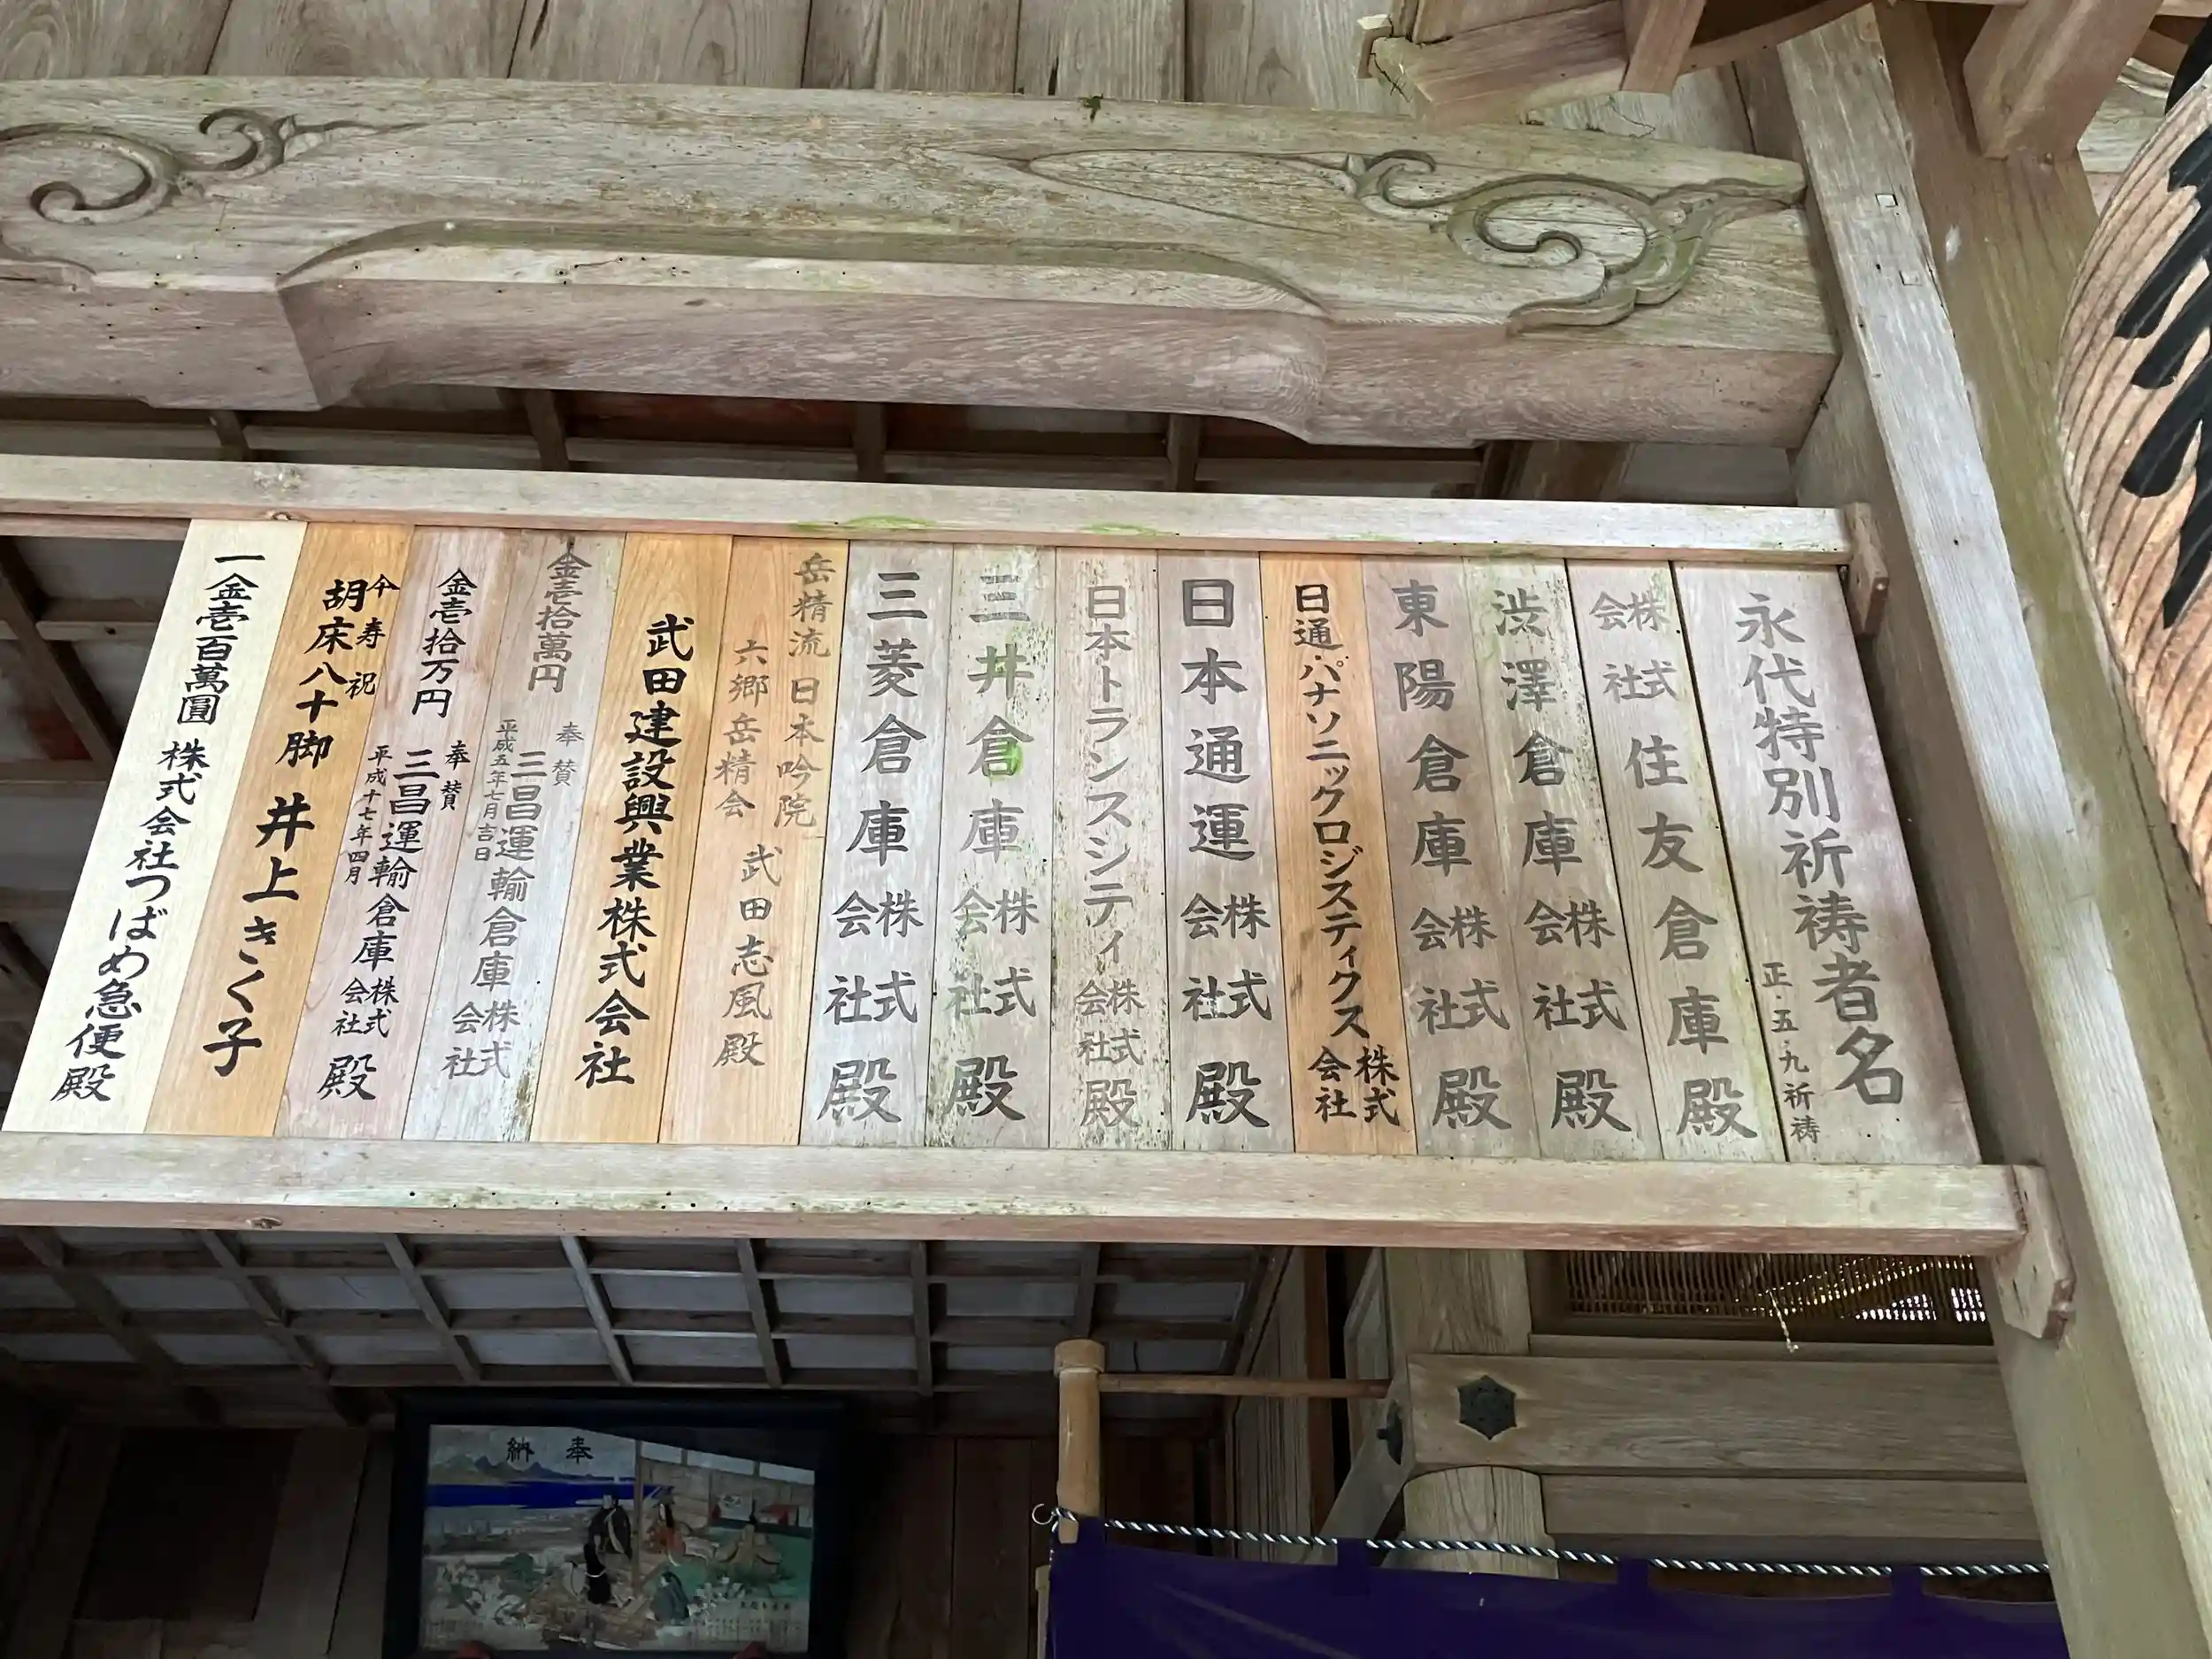 永代特別祈祷者名
正・五・九祈祷
株式会社住友倉庫殿
渋澤倉庫株式会社殿
東陽倉庫株式会社殿
日通・パナソニックロジスティクス株式会社
日本通運株式会社殿
日本トランスシティ株式会社殿
三井倉庫株式会社殿
三菱倉庫株式会社殿
岳精流日本吟院
六郷岳精会
武田志風殿
武田建設興業株式会社
金壱拾萬円
奉賛
三昌運輸倉庫株式会社
平成五年七月吉日
金壱拾万円
奉賛
三昌運輸倉庫株式会社殿
平成十七年四月
傘寿祝
胡床八十脚
井上きく子
一金壱百萬圓
株式会社つばめ急便殿
奉納